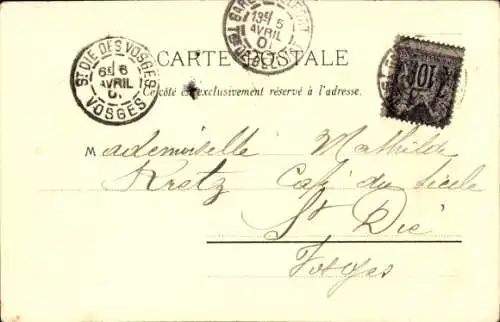 ST DIE DES VOSGES
6E 6
AVRIL
01
VOSGES
13E 5
AVRIL
01
CARTE POSTALE
Ce côté est exclusivement réservé à l'adresse.
10
Mademoiselle Mathilde
Kretz Café du Siècle
St Dié
Vosges